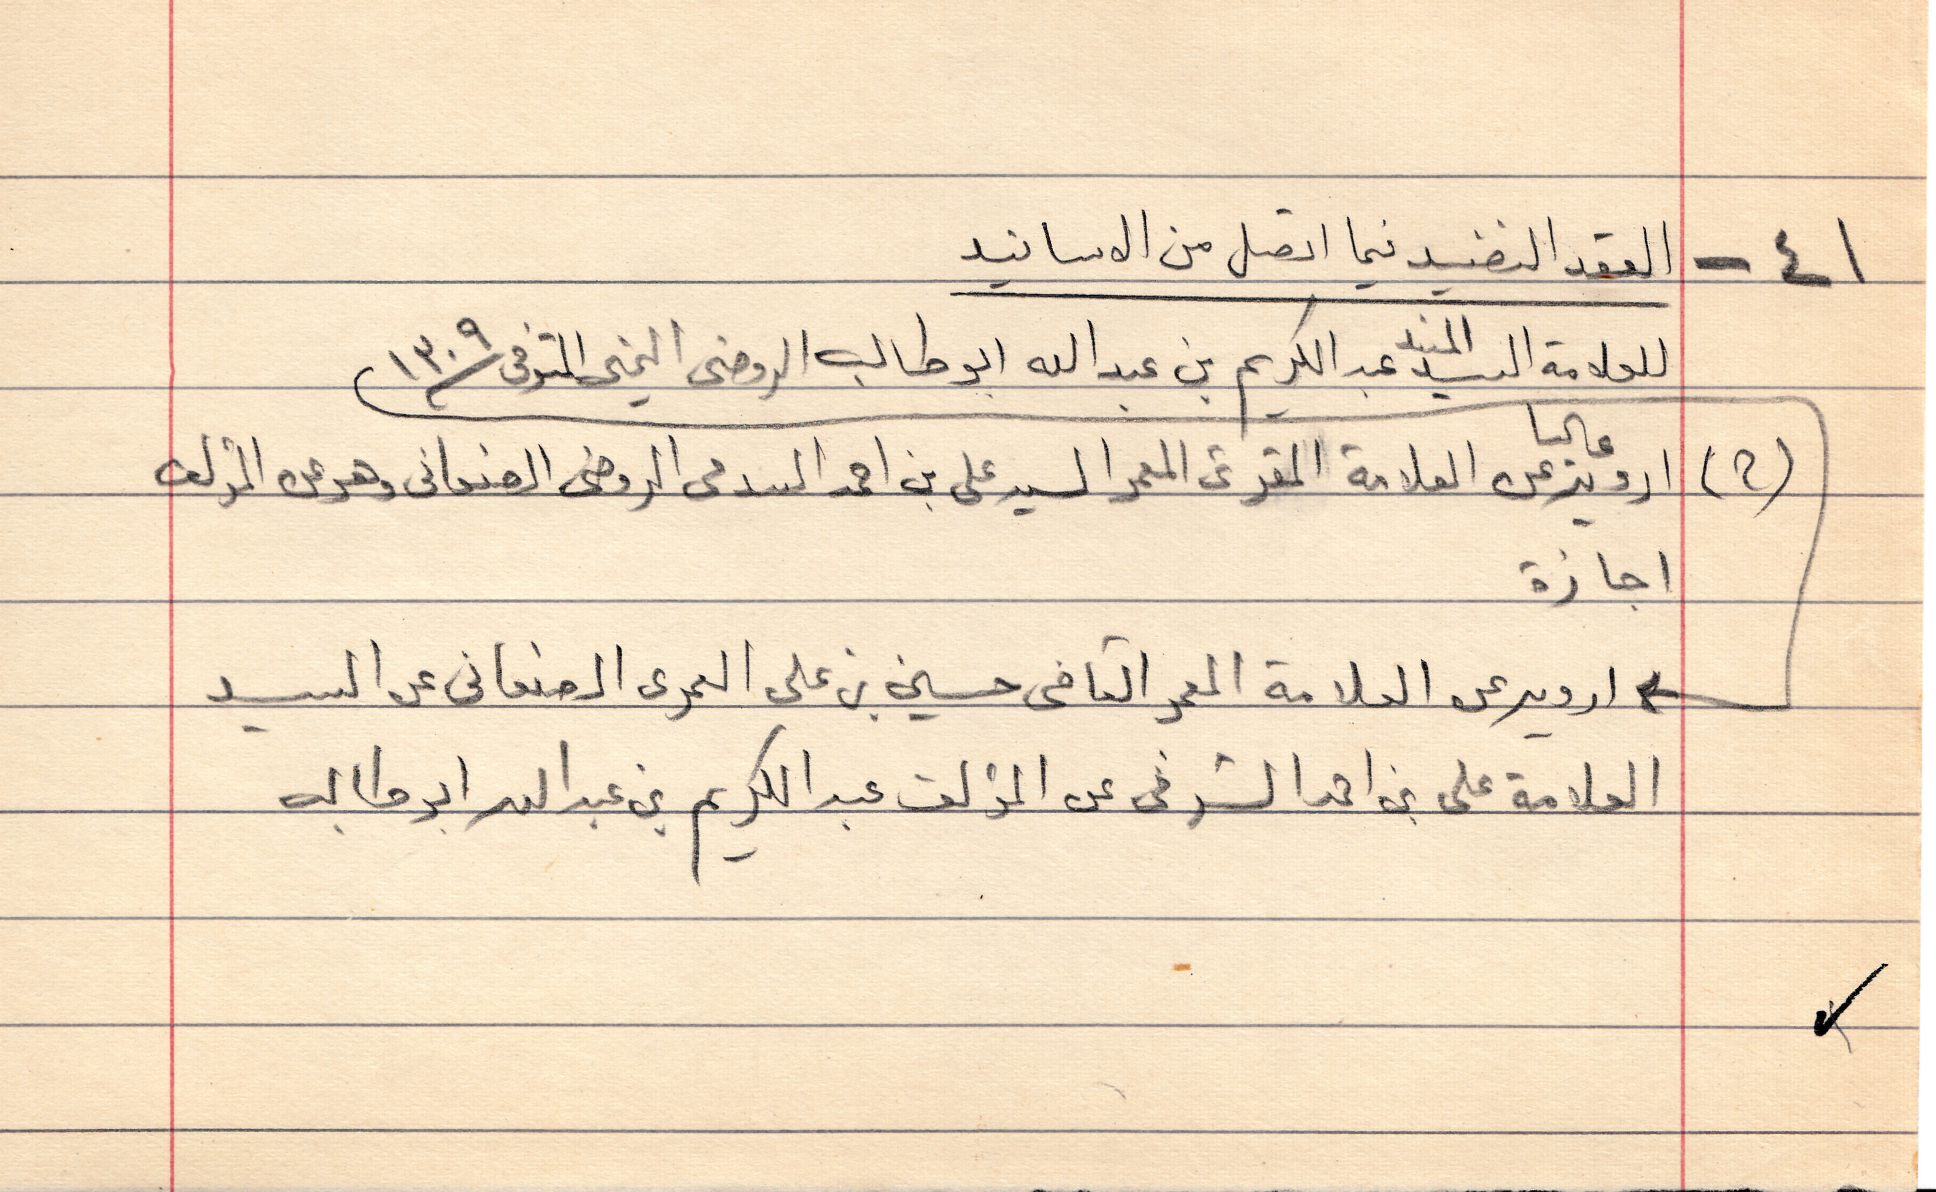 ٤١ - العقد النضيد فيما اتصل من الاسانيد
للعلامة السيد المسند عبد الكريم بن عبد الله ابو طالب الروضى اليمنى المتوفى ١٣٠٩
(٢) ارويه عاليا عن العلامة المقرئ المعمر السيد على بن احمد السدمى الروضى الصنعانى وهو عن المؤلف
اجازة
ارويه عن العلامة المعمر القاضى حسين بن على العمرى الصنعانى عن السيد
العلامة على بن احمد الشرفى عن المؤلف عبد الكريم بن عبد الله ابو طالب